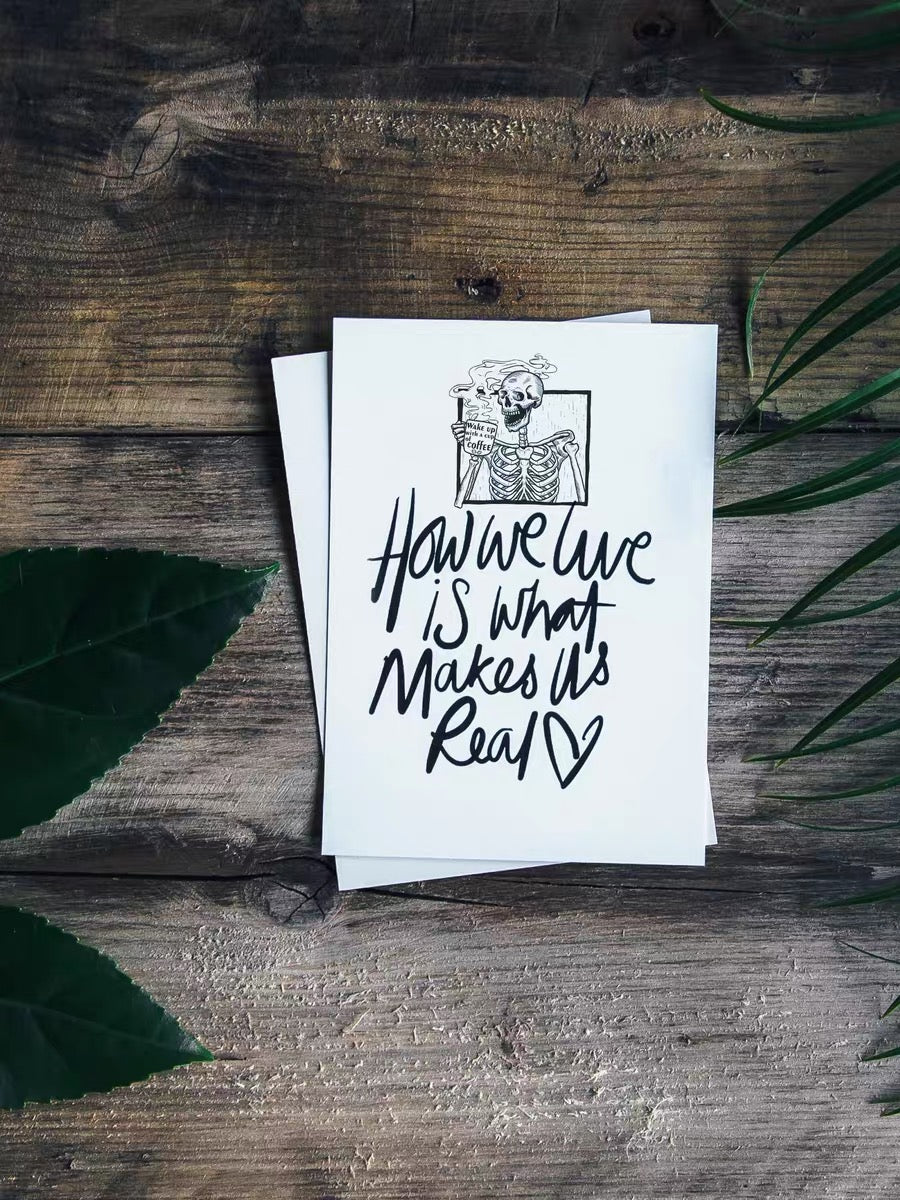 Wake up
with a cup
of
coffee
How we live
is what
Makes Us
Real